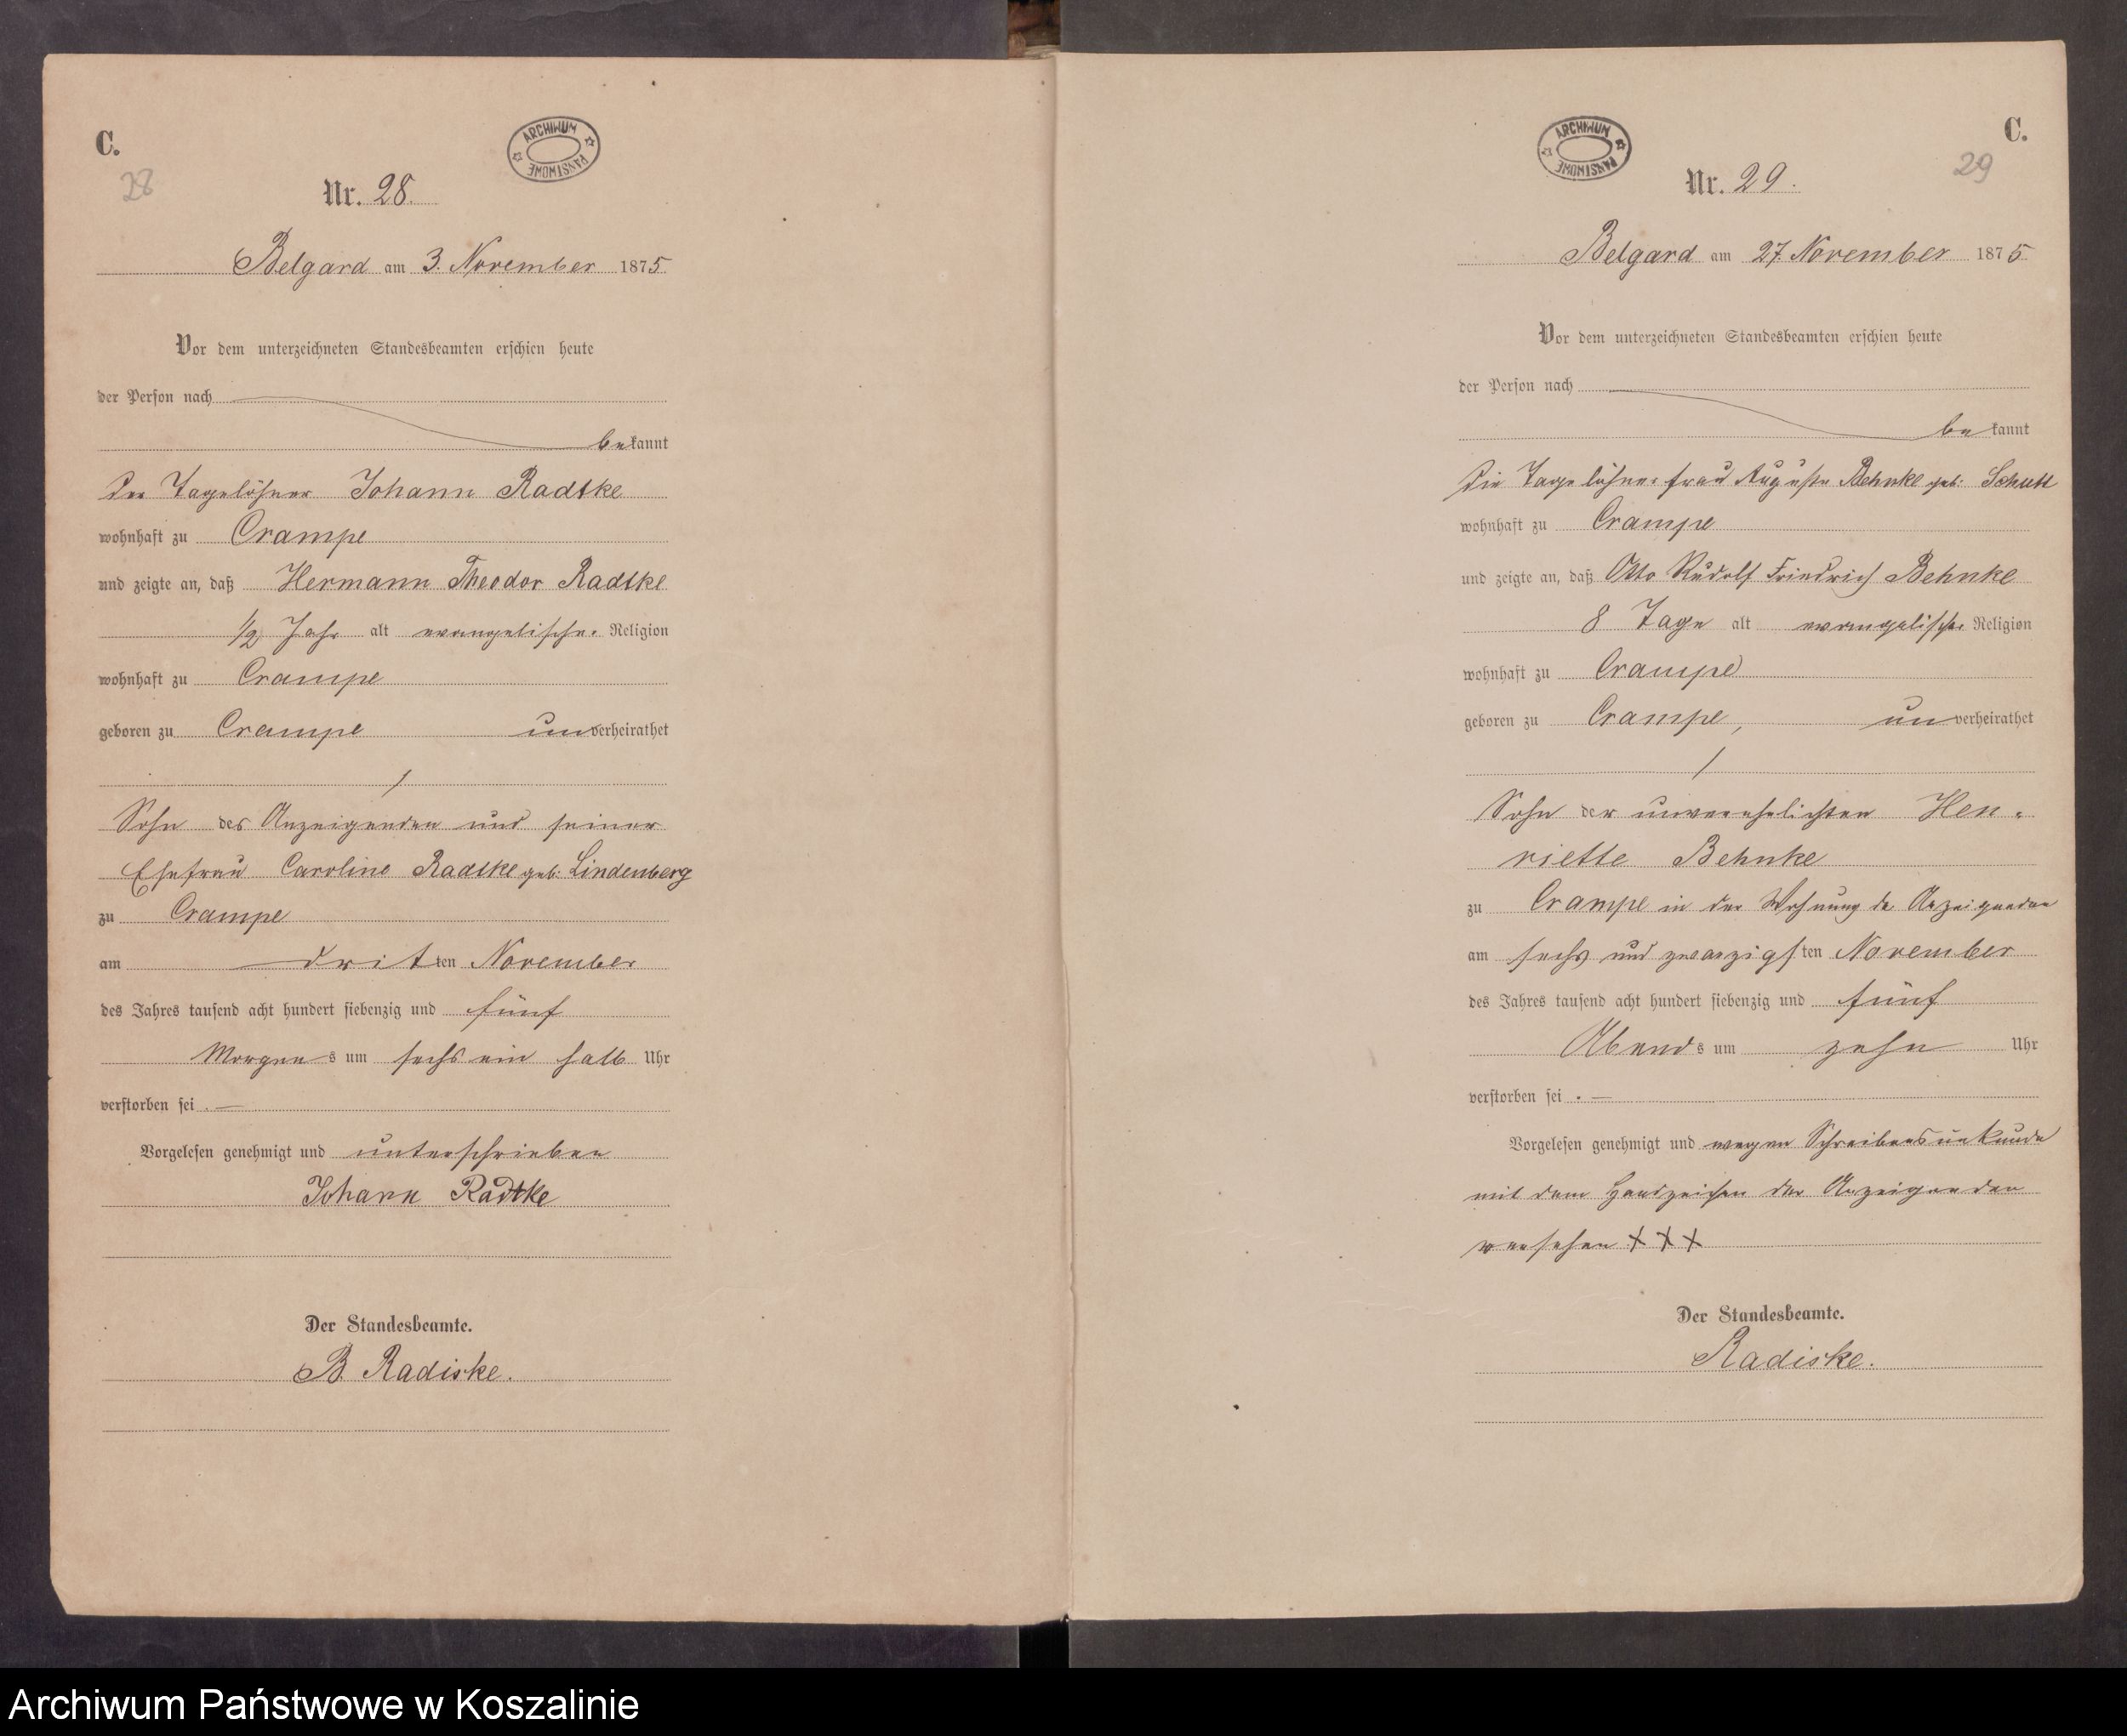 C.
28
ARCHIWUM PAŃSTWOWE
Nr. 28.
Belgard am 3. November 1875
Vor dem unterzeichneten Standesbeamten erschien heute
der Person nach
bekannt
der Tagelöhner Johann Radtke
wohnhaft zu Crampe
und zeigte an, daß Hermann Theodor Radtke
1/2 Jahr alt evangelischer Religion
wohnhaft zu Crampe
geboren zu Crampe unverheirathet
/
Sohn des Anzeigenden und seiner
Ehefrau Caroline Radtke geb: Lindenberg
zu Crampe
am dritten November
des Jahres tausend acht hundert siebenzig und fünf
Morgens um sechs ein halb Uhr
verstorben sei. —
Vorgelesen genehmigt und unterschrieben
Johann Radtke
Der Standesbeamte.
B. Radiske.
C.
29
ARCHIWUM PAŃSTWOWE
Nr. 29.
Belgard am 27. November 1875
Vor dem unterzeichneten Standesbeamten erschien heute
der Person nach
bekannt
die Tagelöhnerfrau Auguste Behnke geb: Schutt
wohnhaft zu Crampe
und zeigte an, daß Otto Rudolf Friedrich Behnke
8 Tage alt evangelischer Religion
wohnhaft zu Crampe
geboren zu Crampe, unverheirathet
/
Sohn der unverehelichten Hen-
riette Behnke
zu Crampe in der Wohnung de Anzeigenden
am sechs und zwanzigsten November
des Jahres tausend acht hundert siebenzig und fünf
Abends um zehn Uhr
verstorben sei. —
Vorgelesen genehmigt und wegen Schreibensunkunde
mit dem Handzeichen der Anzeigenden
versehen XXX
Der Standesbeamte.
Radiske.
Archiwum Państwowe w Koszalinie